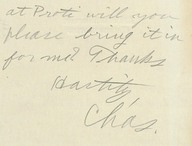 at Proti will you
please bring it in
for me? Thanks
Hastily
Chas.